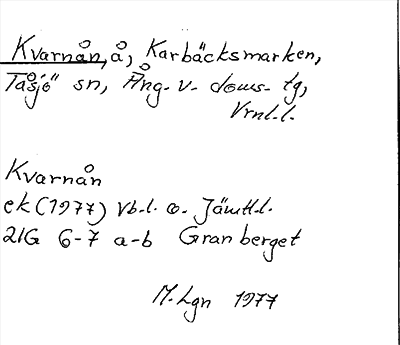 Kvarnån, å, Karbäcksmarken,
Tåsjö sn, Ång. v. doms. tg,
Vrnl.l.
Kvarnån
ek (1977) Vb.l. o. Jämtl.l.
21G 6-7 a-b Granberget
M. Lgn 1977